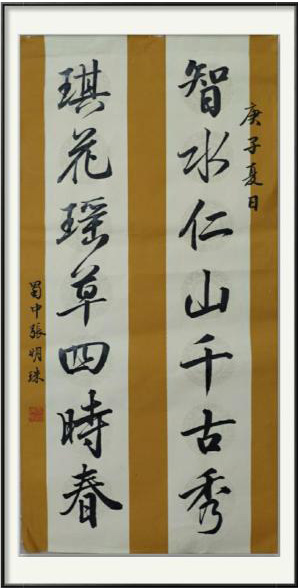 庚子夏日
智水仁山千古秀
琪花瑶草四時春
蜀中張明珠